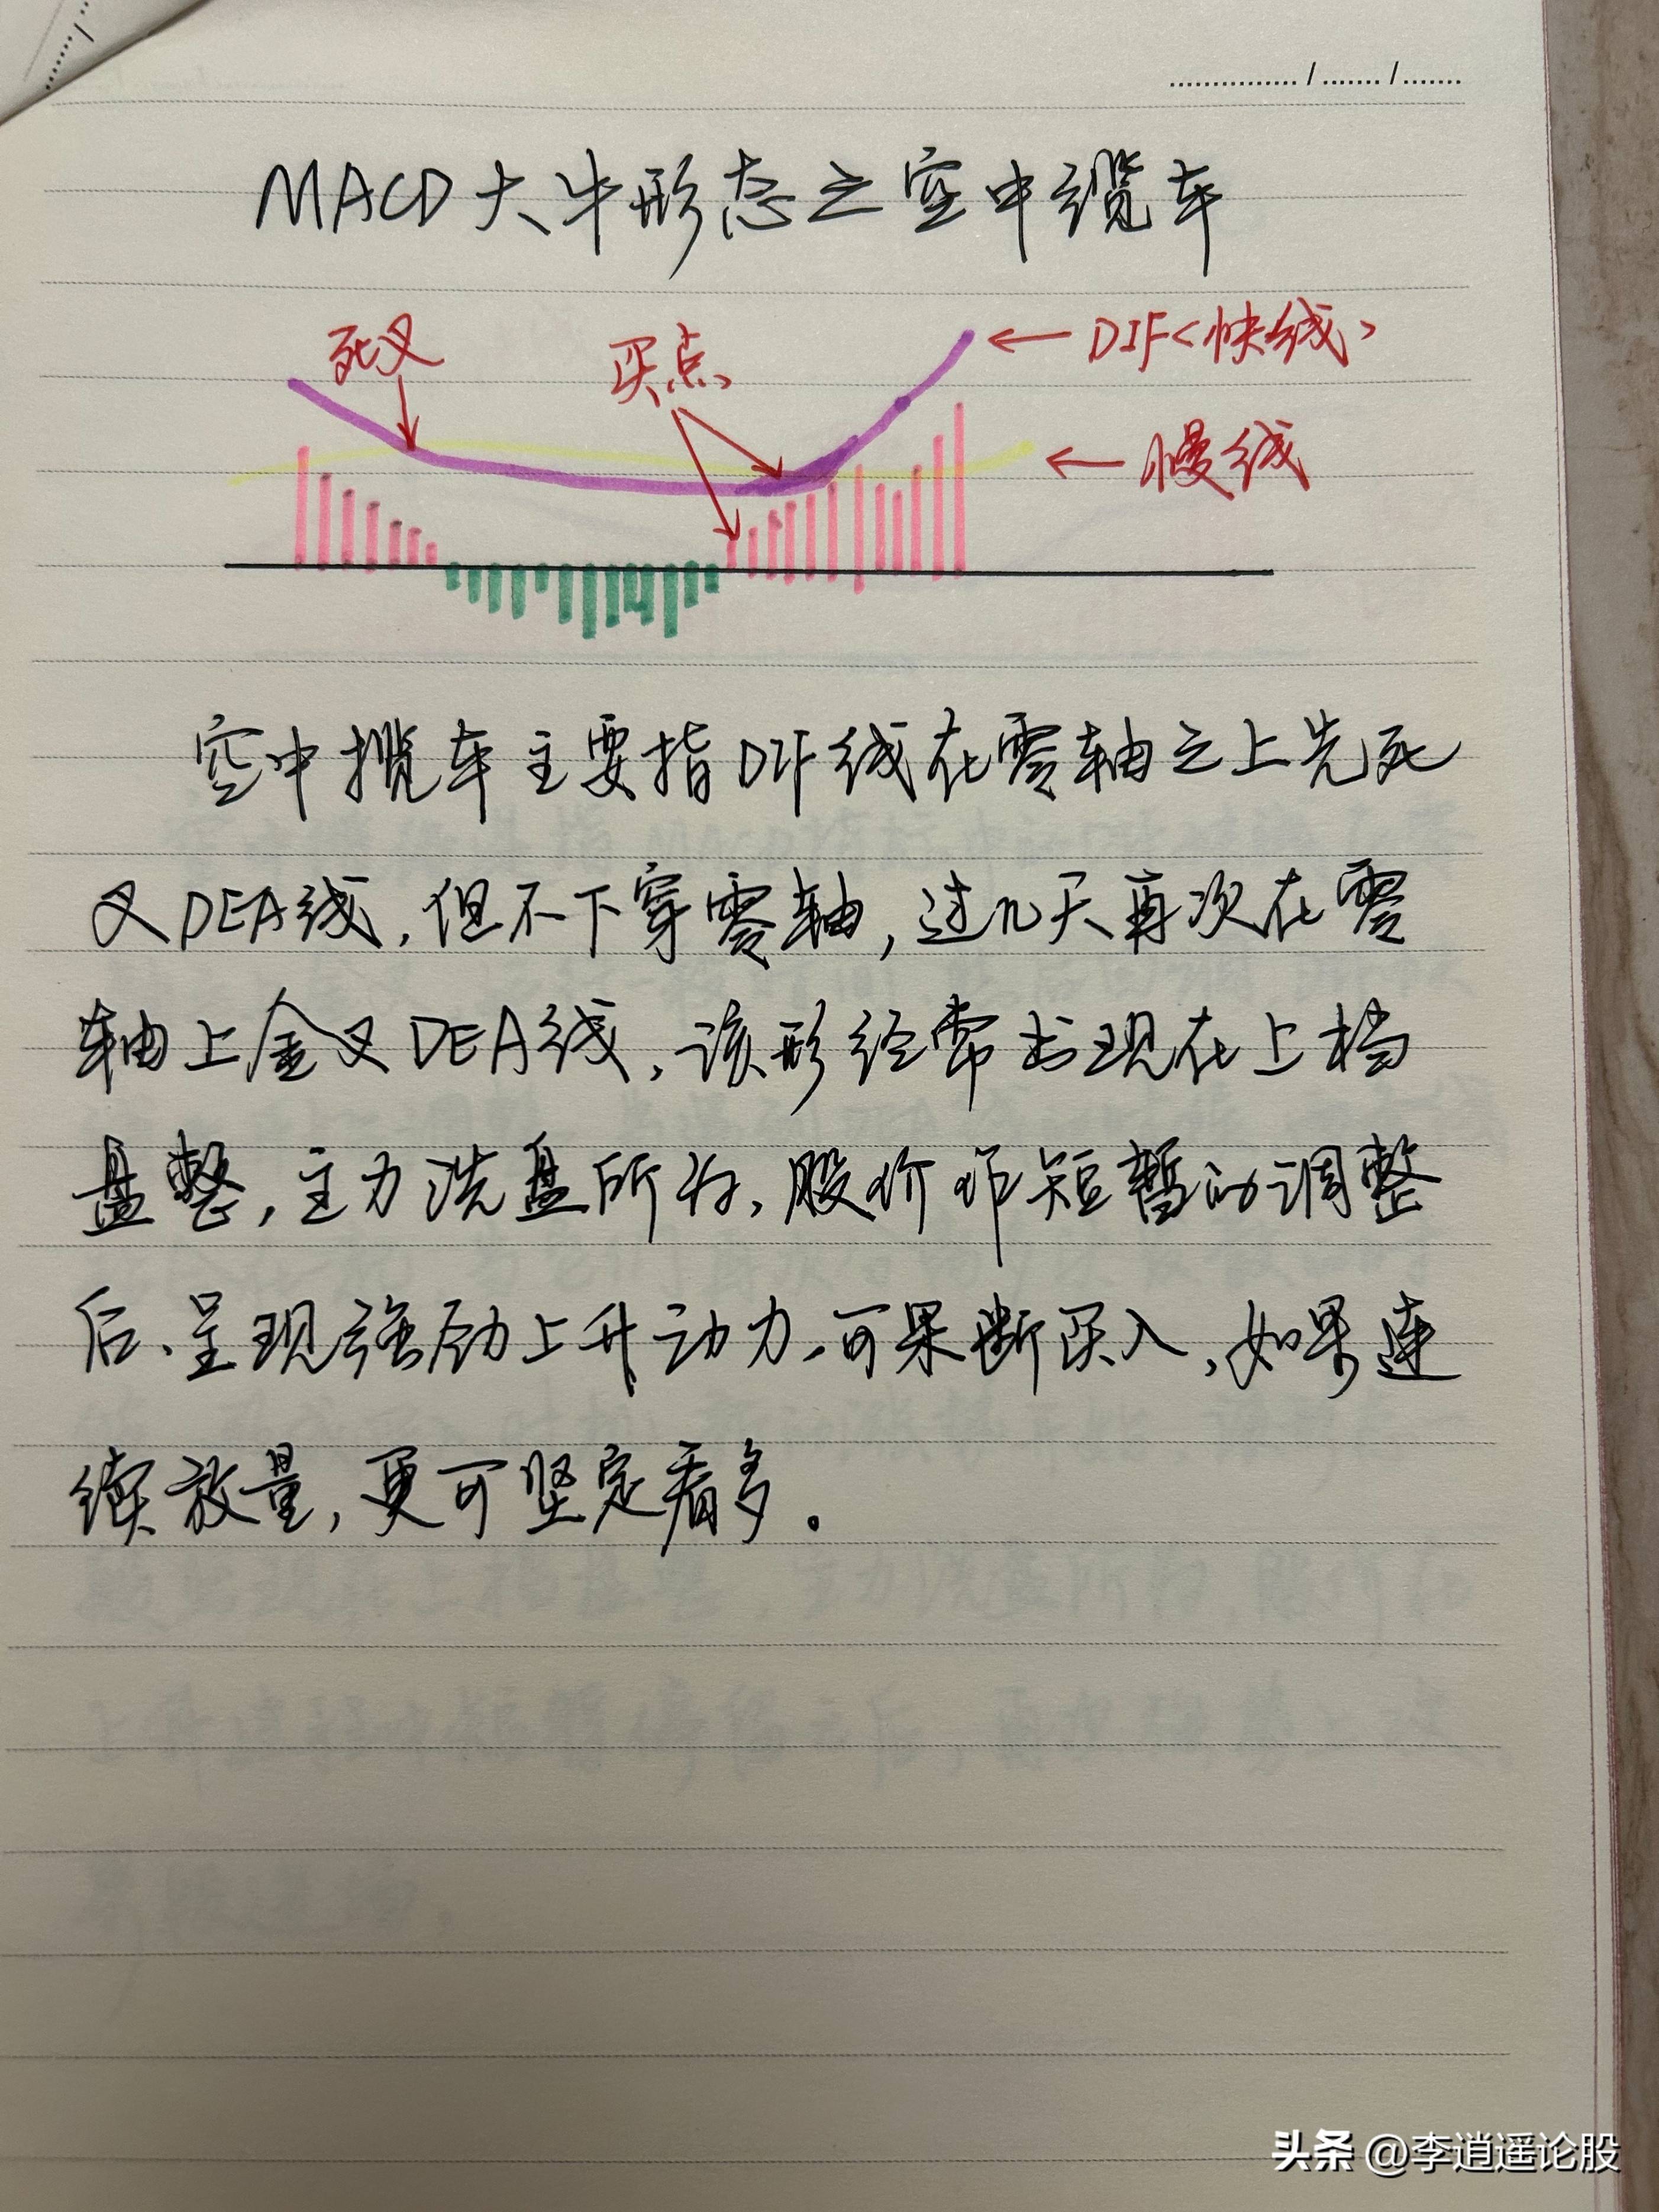 ............... / ....... / .......
MACD大牛形态之空中缆车
死叉
买点
← DIF<快线>
← 慢线
空中揽车主要指DIF线在零轴之上先死
叉DEA线，但不下穿零轴，过几天再次在零
轴上金叉DEA线，该形经常出现在上档
盘整，主力洗盘所为，股价作短暂的调整
后、呈现强劲上升动力，可果断买入，如果连
续放量，更可坚定看多。
头条 @李逍遥论股